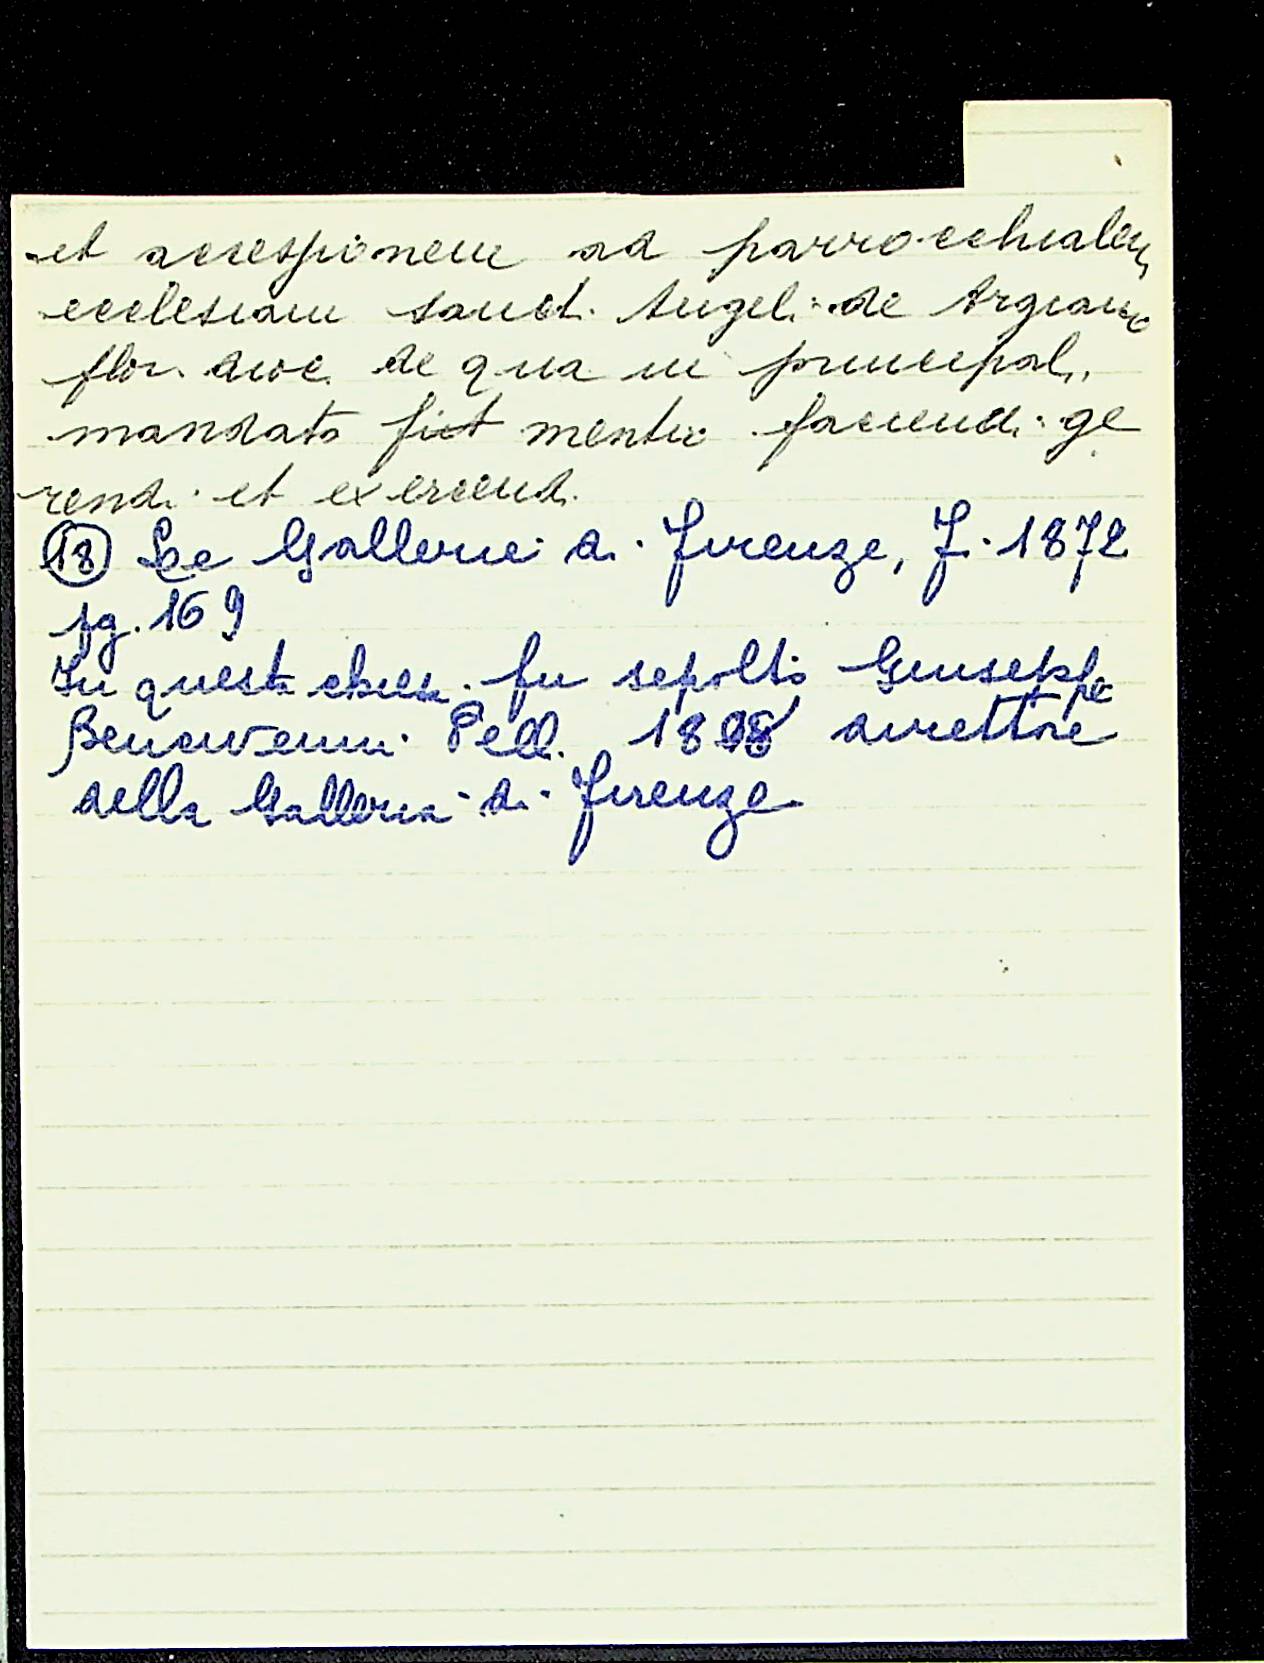 et accespionem ad parrocchialem
ecclesiam sanct. Angeli de Argiano
flor. dioc. de qua in principal.
mandato fiet mentio faciendi ge
rendi et exercend.
(18) Le Gallerie di Firenze, F. 1872
pg. 169
In questa chiesa fu sepolto Giuseppe
Bencivenni Pell. 1808 direttore
della Galleria di Firenze